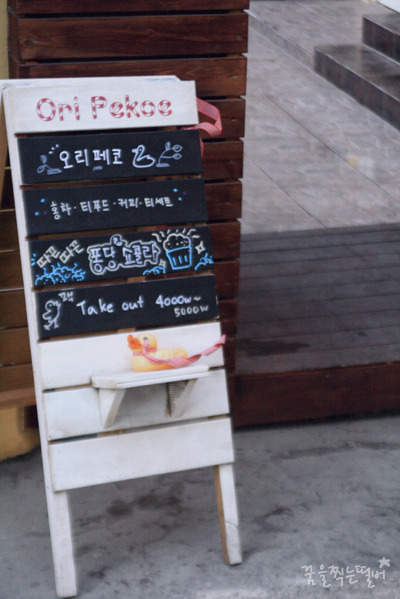 Ori Pekoe
오리페코
홍차·티푸드·커피·티세트
따끈따끈
퐁당 쇼콜라
Take out 4000w~
5000w
꿈을찍는떨버